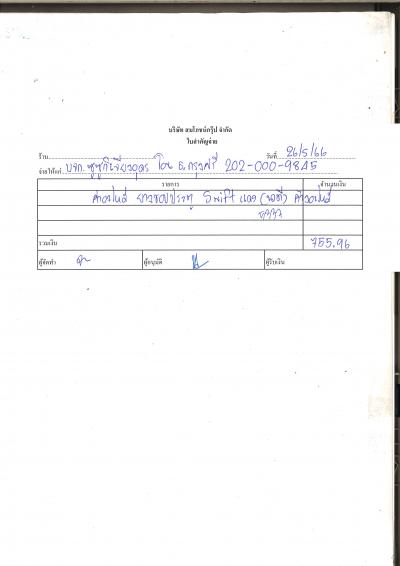 บริษัท สมโภชน์กรุ๊ป จำกัด
ใบสำคัญจ่าย
ร้าน วันที่ 26/5/66
จ่ายให้แก่ บจก. ซูซูกิเจียวอุดร โดย ธ.กรุงศรี 202-000-9845
รายการ จำนวนเงิน
ค่าอะไหล่ ยางขอบประตู Swift แดง
รวมเงิน 755.96
ผู้จัดทำ ผู้อนุมัติ ผู้รับเงิน